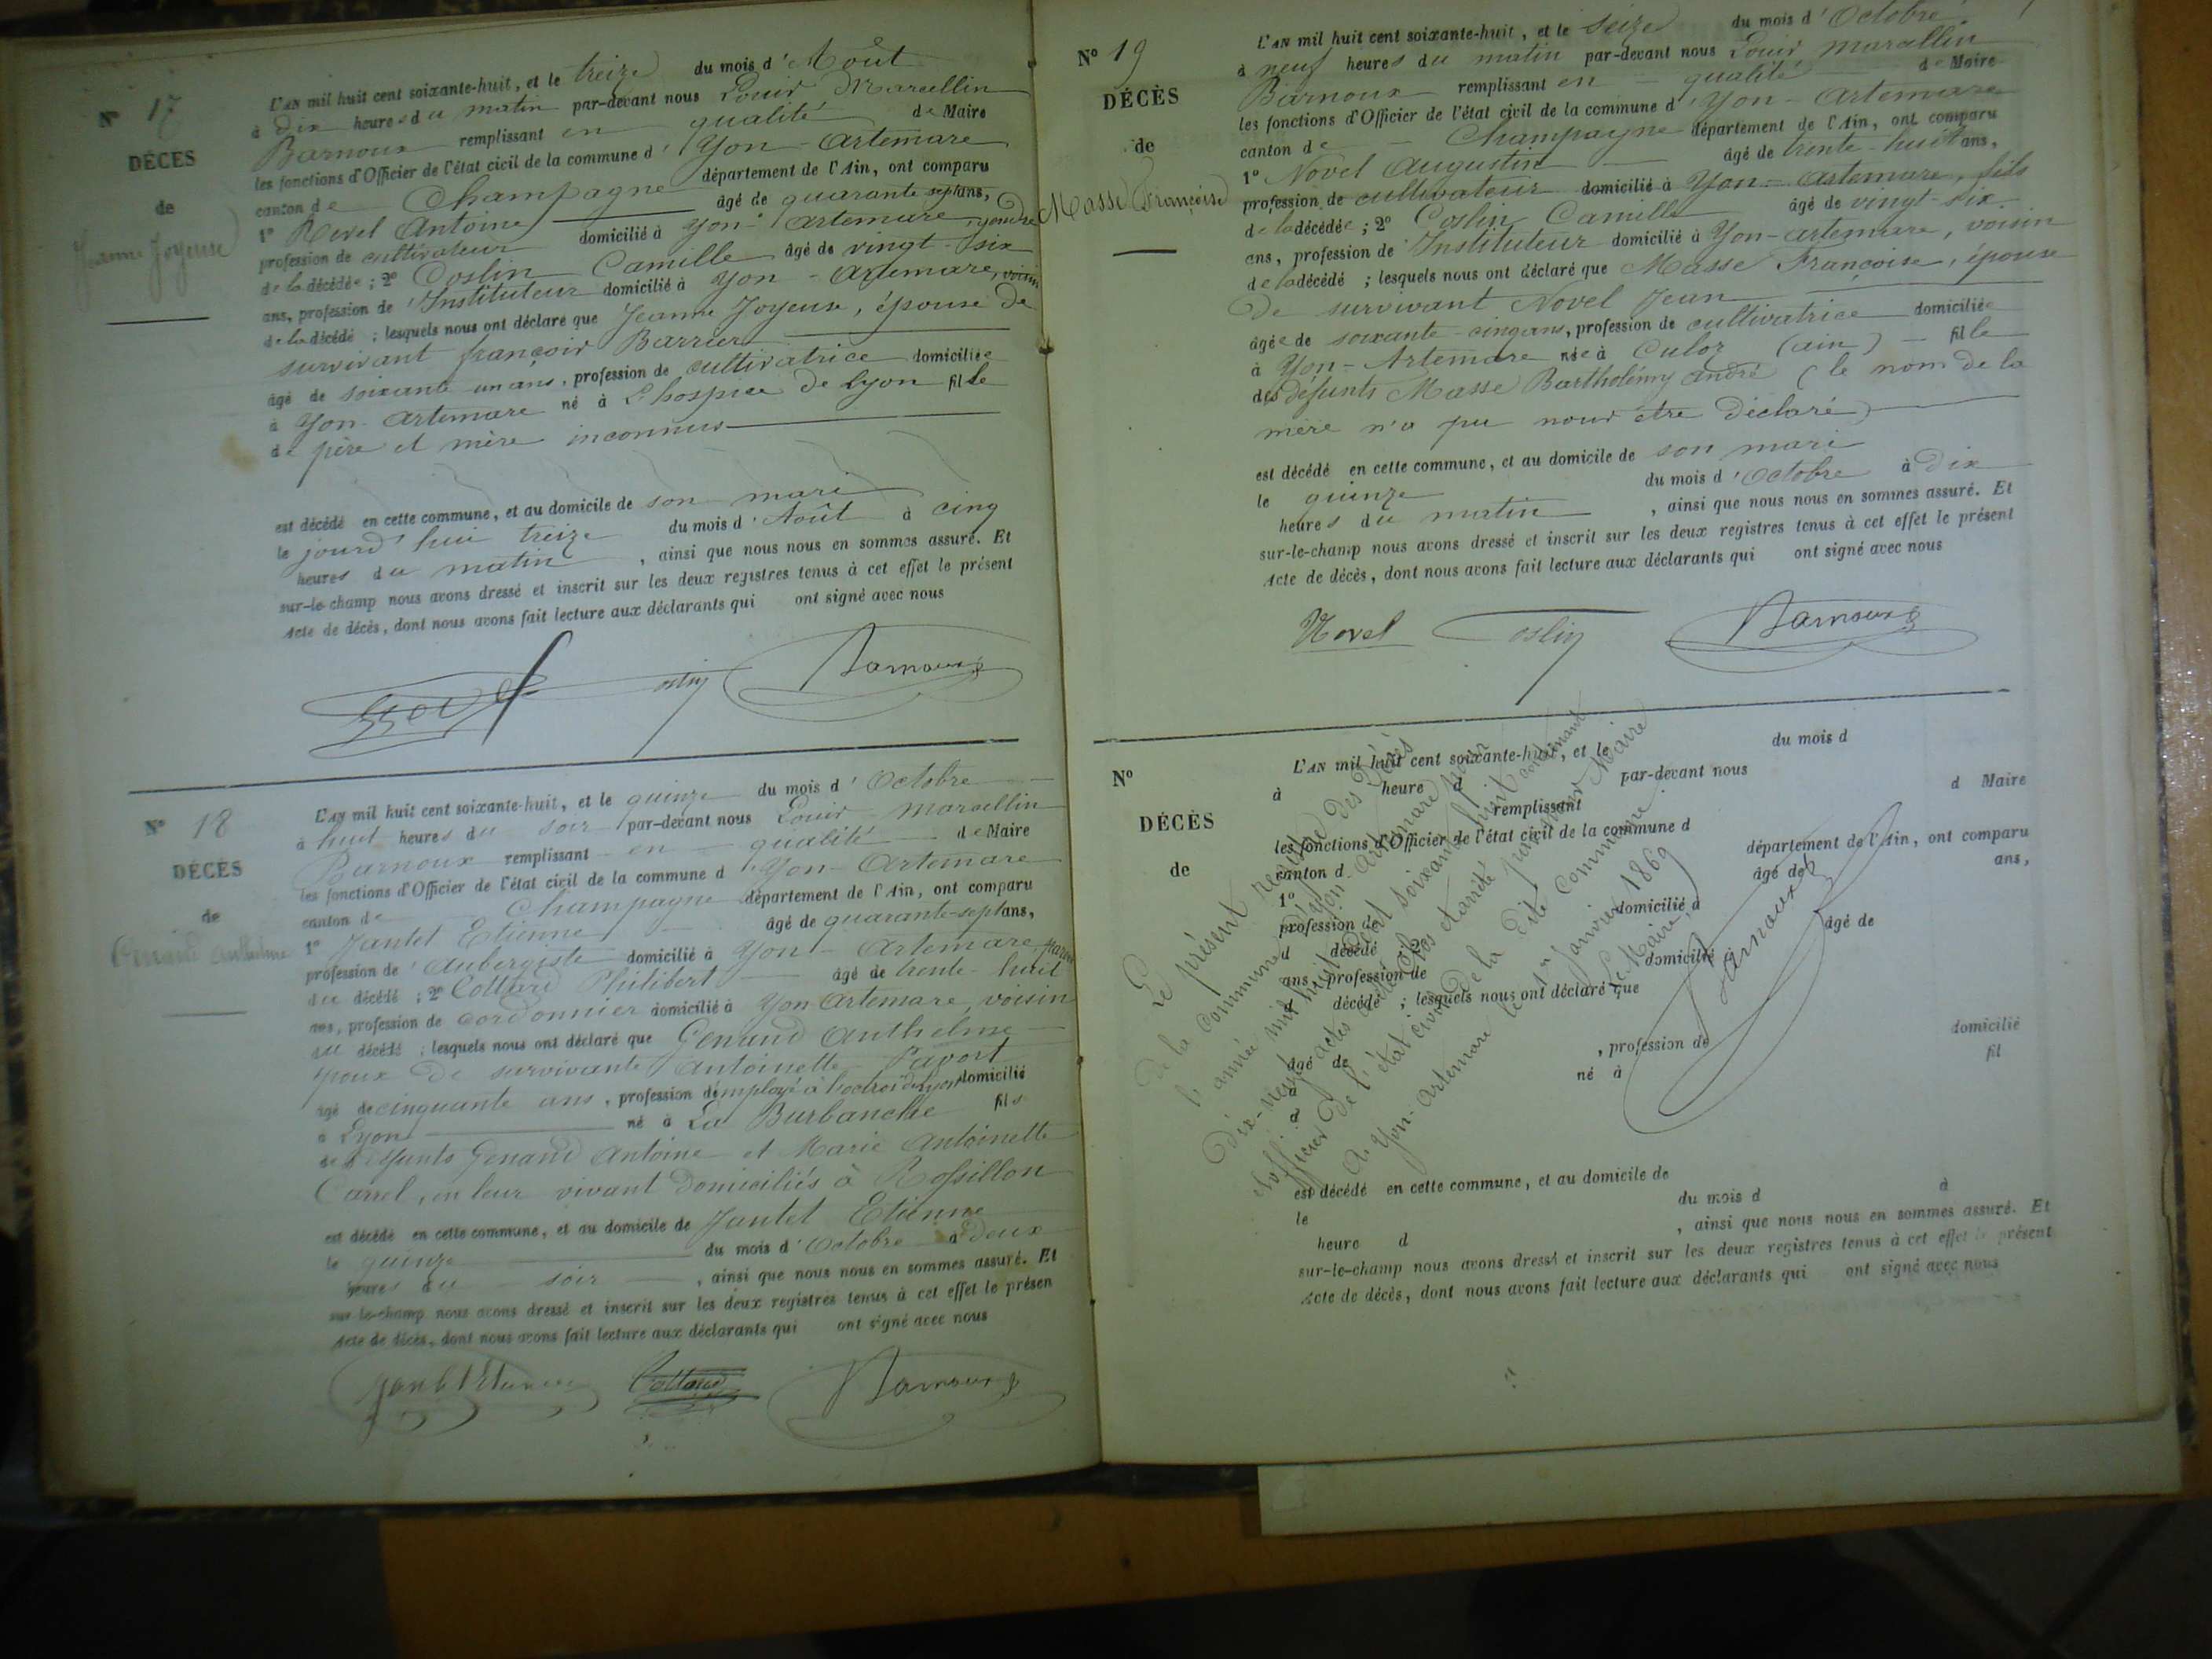 N° 17
DÉCÈS
de
Jeanne Joyeuse
L'AN mil huit cent soixante-huit, et le treize du mois d'Août
à dix heures du matin par-devant nous Louis Marcellin
Barnoux remplissant en qualité de Maire
les fonctions d'Officier de l'état civil de la commune d'Yon-Artemare
canton de Champagne département de l'Ain, ont comparu
1° Revel Antoine âgé de quarante sept ans,
profession de cultivateur domicilié à Yon-Artemare, gendre
de la décédée ; 2° Coslin Camille âgé de vingt-six
ans, profession de Instituteur domicilié à Yon-Artemare, voisin
de la décédé ; lesquels nous ont déclaré que Jeanne Joyeuse, épouse de
survivant françois Barrier
âgé de soixante un ans, profession de cultivatrice domiciliée
à Yon-Artemare né à L'hospice de Lyon fille
de père et mère inconnus
est décédé en cette commune, et au domicile de son mari
le jourd'hui treize du mois d'Août à cinq
heures du matin, ainsi que nous nous en sommes assuré. Et
sur-le-champ nous avons dressé et inscrit sur les deux registres tenus à cet effet le présent
Acte de décès, dont nous avons fait lecture aux déclarants qui ont signé avec nous
Coslin Barnoux
N° 18
DÉCÈS
de
Genand Anthelme
L'AN mil huit cent soixante-huit, et le quinze du mois d'Octobre
à huit heures du soir par-devant nous Louis Marcellin
Barnoux remplissant en qualité de Maire
les fonctions d'Officier de l'état civil de la commune d'Yon-Artemare
canton de Champagne département de l'Ain, ont comparu
1° Jantet Etienne âgé de quarante-sept ans,
profession de Aubergiste domicilié à Yon-Artemare,
du décédé ; 2° Cottard Philibert âgé de trente-huit
ans, profession de cordonnier domicilié à Yon Artemare, voisin
du décédé ; lesquels nous ont déclaré que Genand Anthelme
époux de survivante Antoinette Pavort
âgé de cinquante ans, profession d'employé à l'octroi de Lyon domicilié
à Lyon né à La Burbanche fils
des défunts Genand Antoine et Marie Antoinette
Carrel, en leur vivant domiciliés à Rossillon
est décédé en cette commune, et au domicile de Jantet Etienne
le quinze du mois d'Octobre à deux
heures du soir, ainsi que nous nous en sommes assuré. Et
sur-le-champ nous avons dressé et inscrit sur les deux registres tenus à cet effet le présen
Acte de décès, dont nous avons fait lecture aux déclarants qui ont signé avec nous
Jantet Etienne Cottard Barnoux
N° 19
DÉCÈS
de
Masse Françoise
L'AN mil huit cent soixante-huit, et le seize du mois d'Octobre
à neuf heures du matin par-devant nous Louis Marcellin
Barnoux remplissant en qualité de Maire
les fonctions d'Officier de l'état civil de la commune d'Yon-Artemare
canton de Champagne département de l'Ain, ont comparu
1° Novel Augustin âgé de trente-huit ans,
profession de cultivateur domicilié à Yon-Artemare, fils
de la décédée ; 2° Coslin Camille âgé de vingt-six
ans, profession de Instituteur domicilié à Yon-Artemare, voisin
de la décédé ; lesquels nous ont déclaré que Masse Françoise, épouse
de survivant Novel Jean
âgée de soixante-cinq ans, profession de cultivatrice domiciliée
à Yon-Artemare née à Culoz (ain) fille
des défunts Masse Bartholémy André (le nom de la
mère n'a pu nous être déclaré)
est décédé en cette commune, et au domicile de son mari
le quinze du mois d'Octobre à dix
heures du matin, ainsi que nous nous en sommes assuré. Et
sur-le-champ nous avons dressé et inscrit sur les deux registres tenus à cet effet le présent
Acte de décès, dont nous avons fait lecture aux déclarants qui ont signé avec nous
Novel Coslin Barnoux
N°
DÉCÈS
de
L'AN mil huit cent soixante-huit, et le du mois d
à heure d par-devant nous
remplissant d Maire
les fonctions d'Officier de l'état civil de la commune d
canton d département de l'Ain, ont comparu
1° âgé de ans,
profession de domicilié à
d décédé ; 2° âgé de
ans, profession de domicilié à
d décédé ; lesquels nous ont déclaré que
âgé de , profession de domicilié
à né à fil
d
est décédé en cette commune, et au domicile de
le du mois d à
heure d , ainsi que nous nous en sommes assuré. Et
sur-le-champ nous avons dressé et inscrit sur les deux registres tenus à cet effet le présent
Acte de décès, dont nous avons fait lecture aux déclarants qui ont signé avec nous
Le présent registre des Décès
de la commune d'Yon-Artemare pour
l'année mil huit cent soixante huit contenant
dix-neuf actes a été clos et arrêté par nous Maire
et officier de l'état civil de la dite commune.
A Yon-Artemare le 1er Janvier 1869
Le Maire,
Barnoux